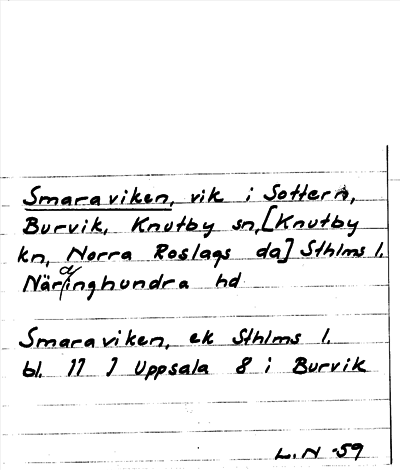 Smaraviken, vik i Sottern,
Burvik, Knutby sn, [Knutby
kn, Norra Roslags da] Sthlms l.
Närdinghundra hd
Smaraviken, ek Sthlms l.
bl. 77 J Uppsala 8 i Burvik
L. N -59